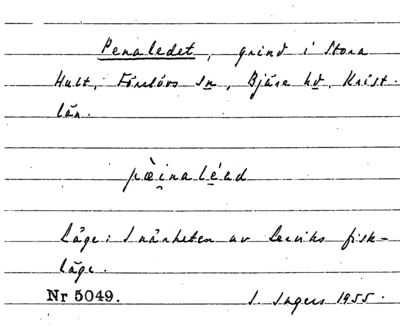 Penaledet, grind i Stora
Hult, Förslövs sn, Bjäre hd, Krist.
län.
pæ̀inaléad
Läge: I närheten av Leeviks fisk-
läge.
Nr 5049.
I. Ingers 1955.